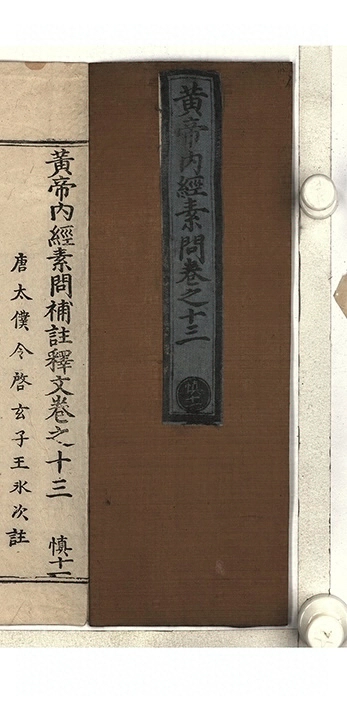 黄帝内經素問卷之十三
慎十一
黃帝內經素問補註釋文卷之十三 慎十一
唐太僕令啓玄子王氷次註